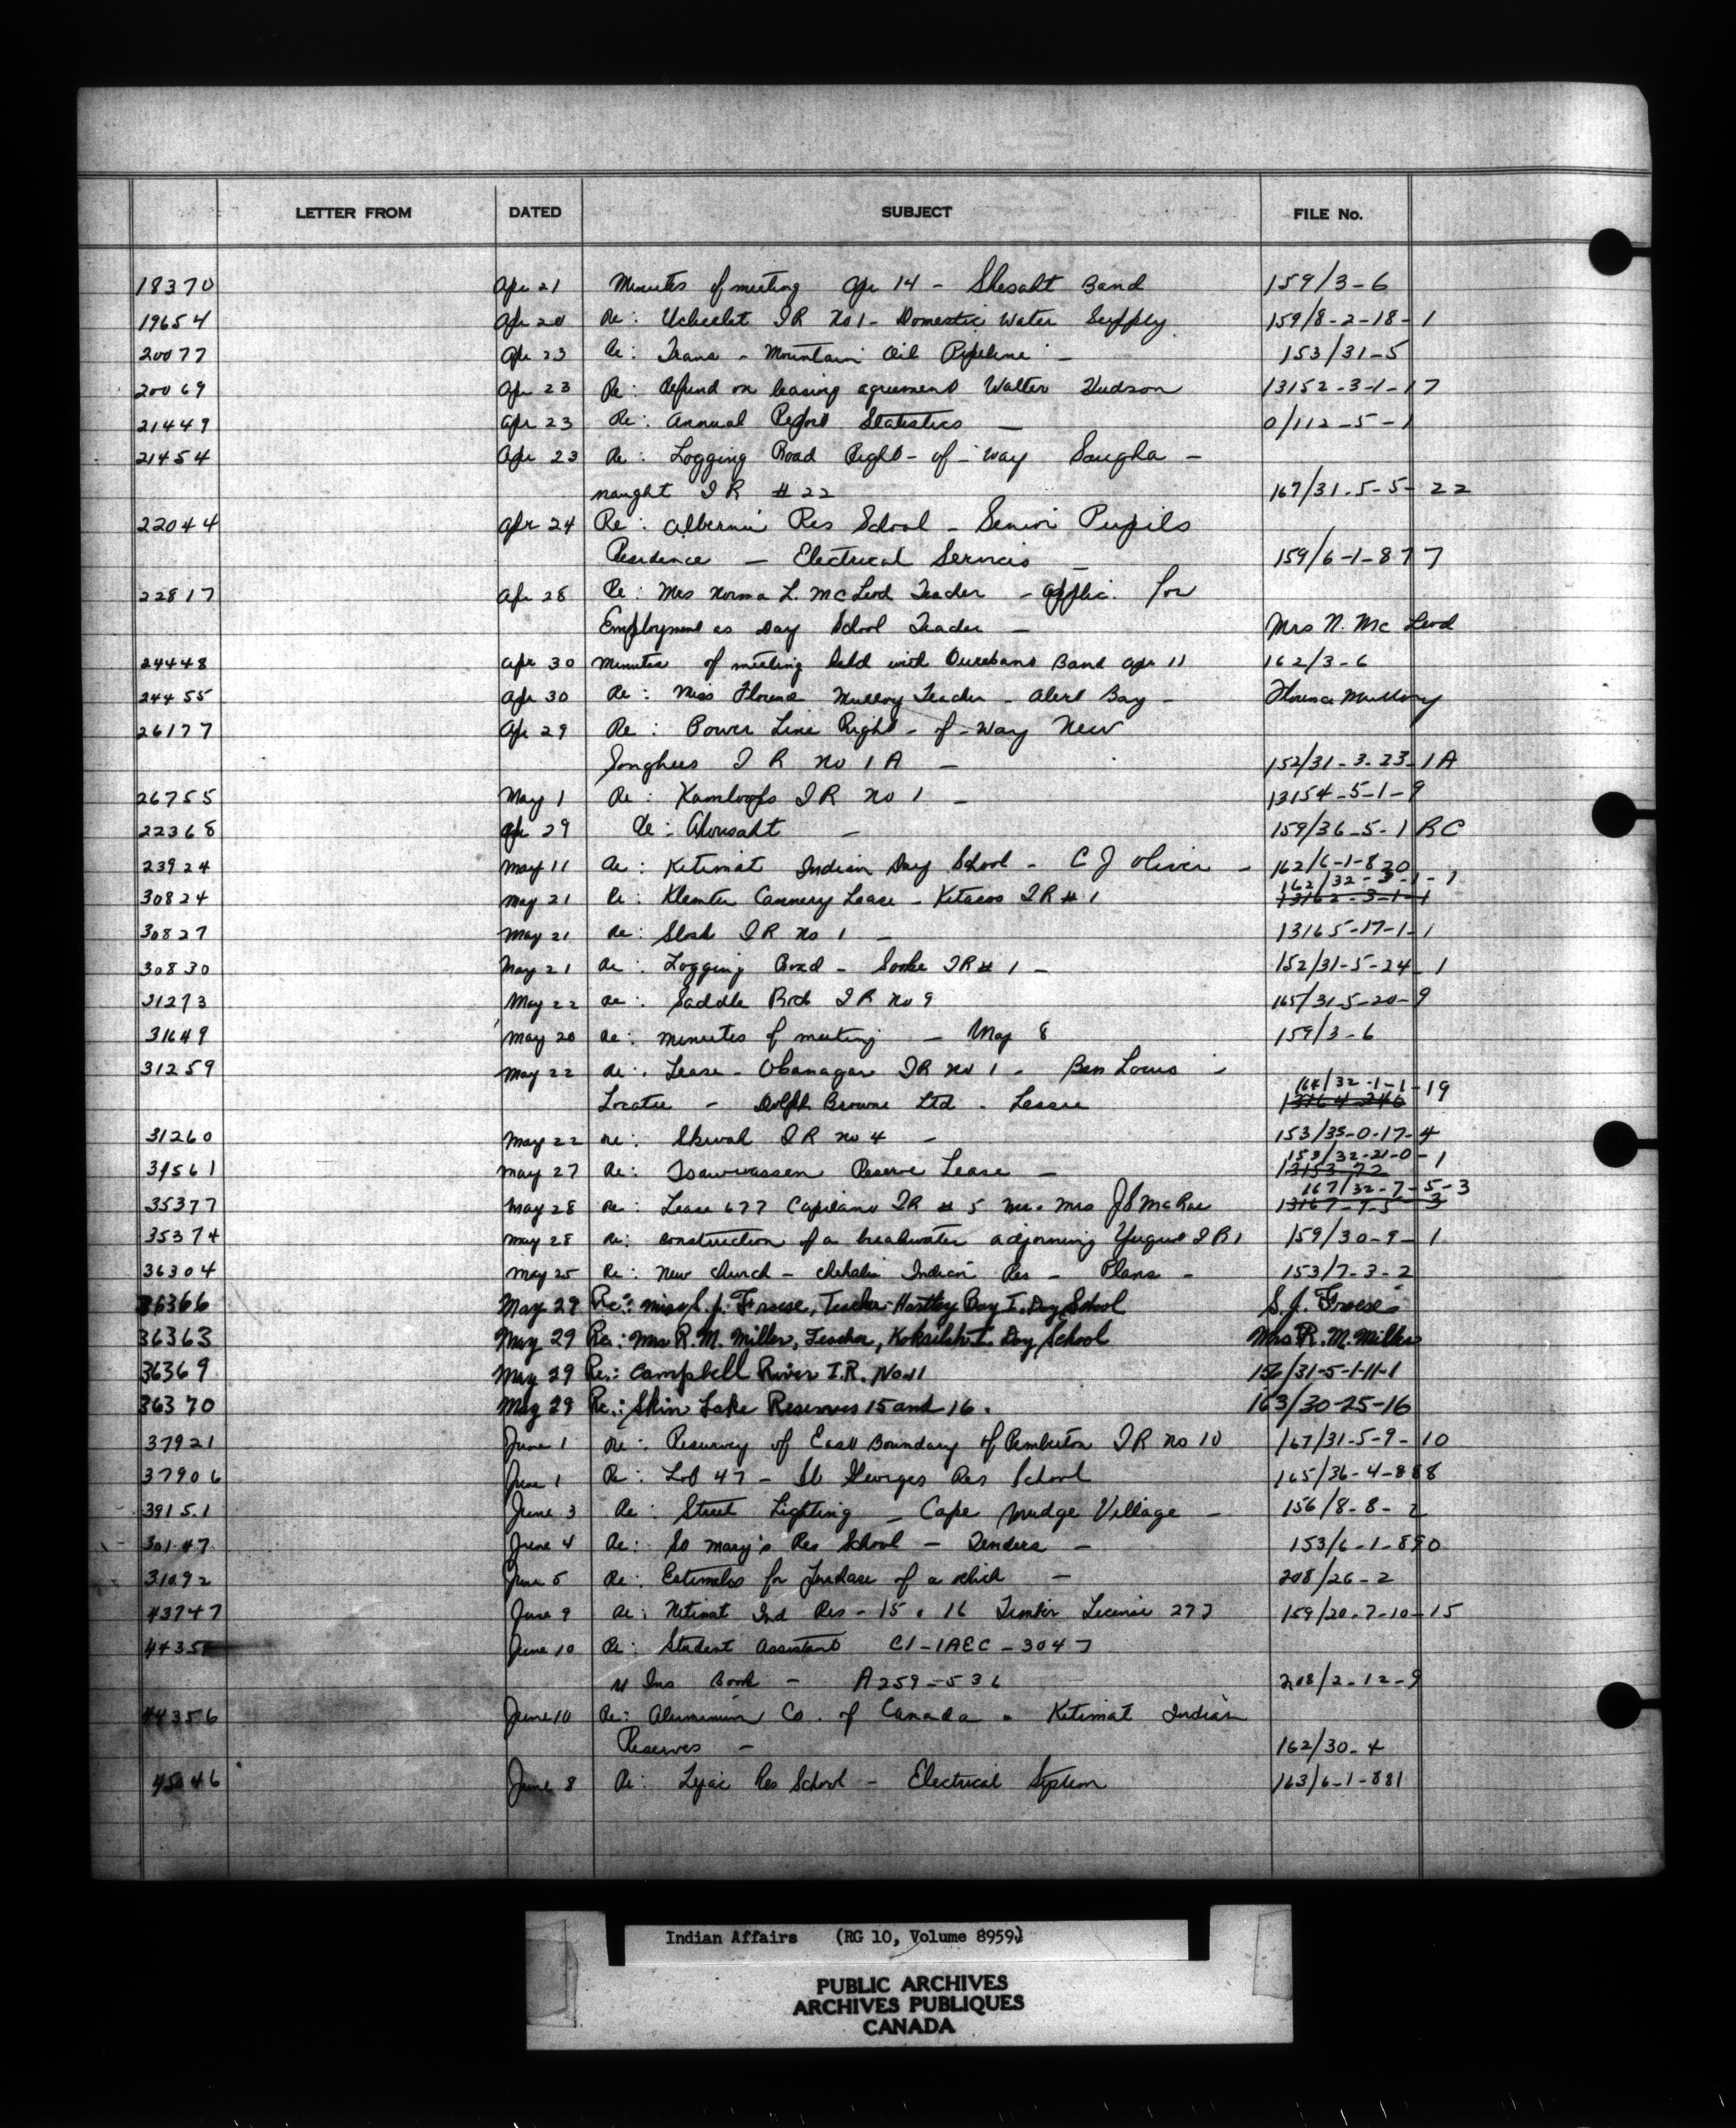 LETTER FROM DATED SUBJECT FILE No.
18370 Apr 21 Minutes of meeting Apr 14 - Shesaht Band 159/3-6
19654 Apr 20 Re: Ucluelet IR No 1 - Domestic Water Supply 159/8-2-18-1
20077 Apr 23 Re: Trans - Mountain Oil Pipeline - 153/31-5
20069 Apr 23 Re: Refund on leasing agreement Walter Hudson 13152-3-1-17
21449 Apr 23 Re: Annual Report Statistics - 0/112-5-1
21454 Apr 23 Re: Logging Road Right-of-way Saugha -
naught IR #22 167/31-5-5-22
22044 Apr 24 Re: Alberni Res School - Senior Pupils
Residence - Electrical Services - 159/6-1-877
22817 Apr 28 Re: Mrs Norma L. McLeod Teacher - applic. for
Employment as Day School Teacher - Mrs N. Mc Leod
24448 Apr 30 Minutes of meeting held with Band Apr 11 162/3-6
24455 Apr 30 Re: Miss Florence Mulloy Teacher - Alert Bay - Florence Mulloy
26177 Apr 29 Re: Power Line Right-of-Way New
Songhees IR No 1A - 152/31-3-23-1A
26755 May 1 Re: Kamloops IR No 1 - 13154-5-1-9
22368 Apr 29 Re: Ahousaht - 159/36-5-1 RC
23924 May 11 Re: Kitimat Indian Day School - C J Oliver - 162/6-1-820
162/32-3-1-1
30824 May 21 Re: Klemtu Cannery Lease - Kitasoo IR #1 13162-3-1-1
30827 May 21 Re: Slosh IR No 1 - 13165-17-1-1
30830 May 21 Re: Logging Road - Sooke IR #1 - 152/31-5-24-1
31273 May 22 Re: Saddle Rock IR No 9 165/31-5-20-9
31649 May 20 Re: minutes of meeting - May 8 159/3-6
31259 May 22 Re: Lease - Okanagan IR No 1 - Ben Louis -
164/32-1-1-19
Locatee - Dolph Browne Ltd - Lessee 13164-246
31260 May 22 Re: Skwah IR No 4 - 153/35-0-17-4
153/32-21-0-1
31561 May 27 Re: Tsawwassen Reserve Lease - 13153-72
167/32-7-5-3
35377 May 28 Re: Lease 677 Capilano IR #5 Mr. Mrs J S McRae 13167-7-5-3
35374 May 28 Re: construction of a breakwater adjoining Yuquot IR 1 159/30-9-1
36304 May 25 Re: New Church - Chehalis Indian Res - Plans - 153/7-3-2
36366 May 29 Re: Miss S. J. Froese, Teacher - Hartley Bay I. Day School S. J. Froese
36363 May 29 Re: Mrs R. M. Miller, Teacher, Koksilah I. Day School Mrs R. M. Miller
36369 May 29 Re: Campbell River I.R. No 11 156/31-5-1-11-1
36370 May 29 Re: Skin Lake Reserves 15 and 16. 163/30-25-16
37921 June 1 Re: Resurvey of East Boundary of Pemberton IR No 10 167/31-5-9-10
37906 June 1 Re: Lot 47 - St Georges Res School 165/36-4-888
39151 June 3 Re: Street Lighting - Cape Mudge Village - 156/8-8-2
30147 June 4 Re: St Mary's Res School - Tenders - 153/6-1-890
31092 June 5 Re: Estimates for purchase of a vehicle - 208/26-2
43747 June 9 Re: Nitinat Ind Res - 15 & 16 Timber License 277 159/20-7-10-15
4435 June 10 Re: Student Assistant C1-IAEC-3047
U Ins Book - A259-536 208/2-12-9
44356 June 10 Re: Aluminium Co. of Canada - Kitimat Indian
Reserves - 162/30-4
45046 June 8 Re: Lejac Res School - Electrical System 163/6-1-881
Indian Affairs (RG 10, Volume 8959)
PUBLIC ARCHIVES
ARCHIVES PUBLIQUES
CANADA